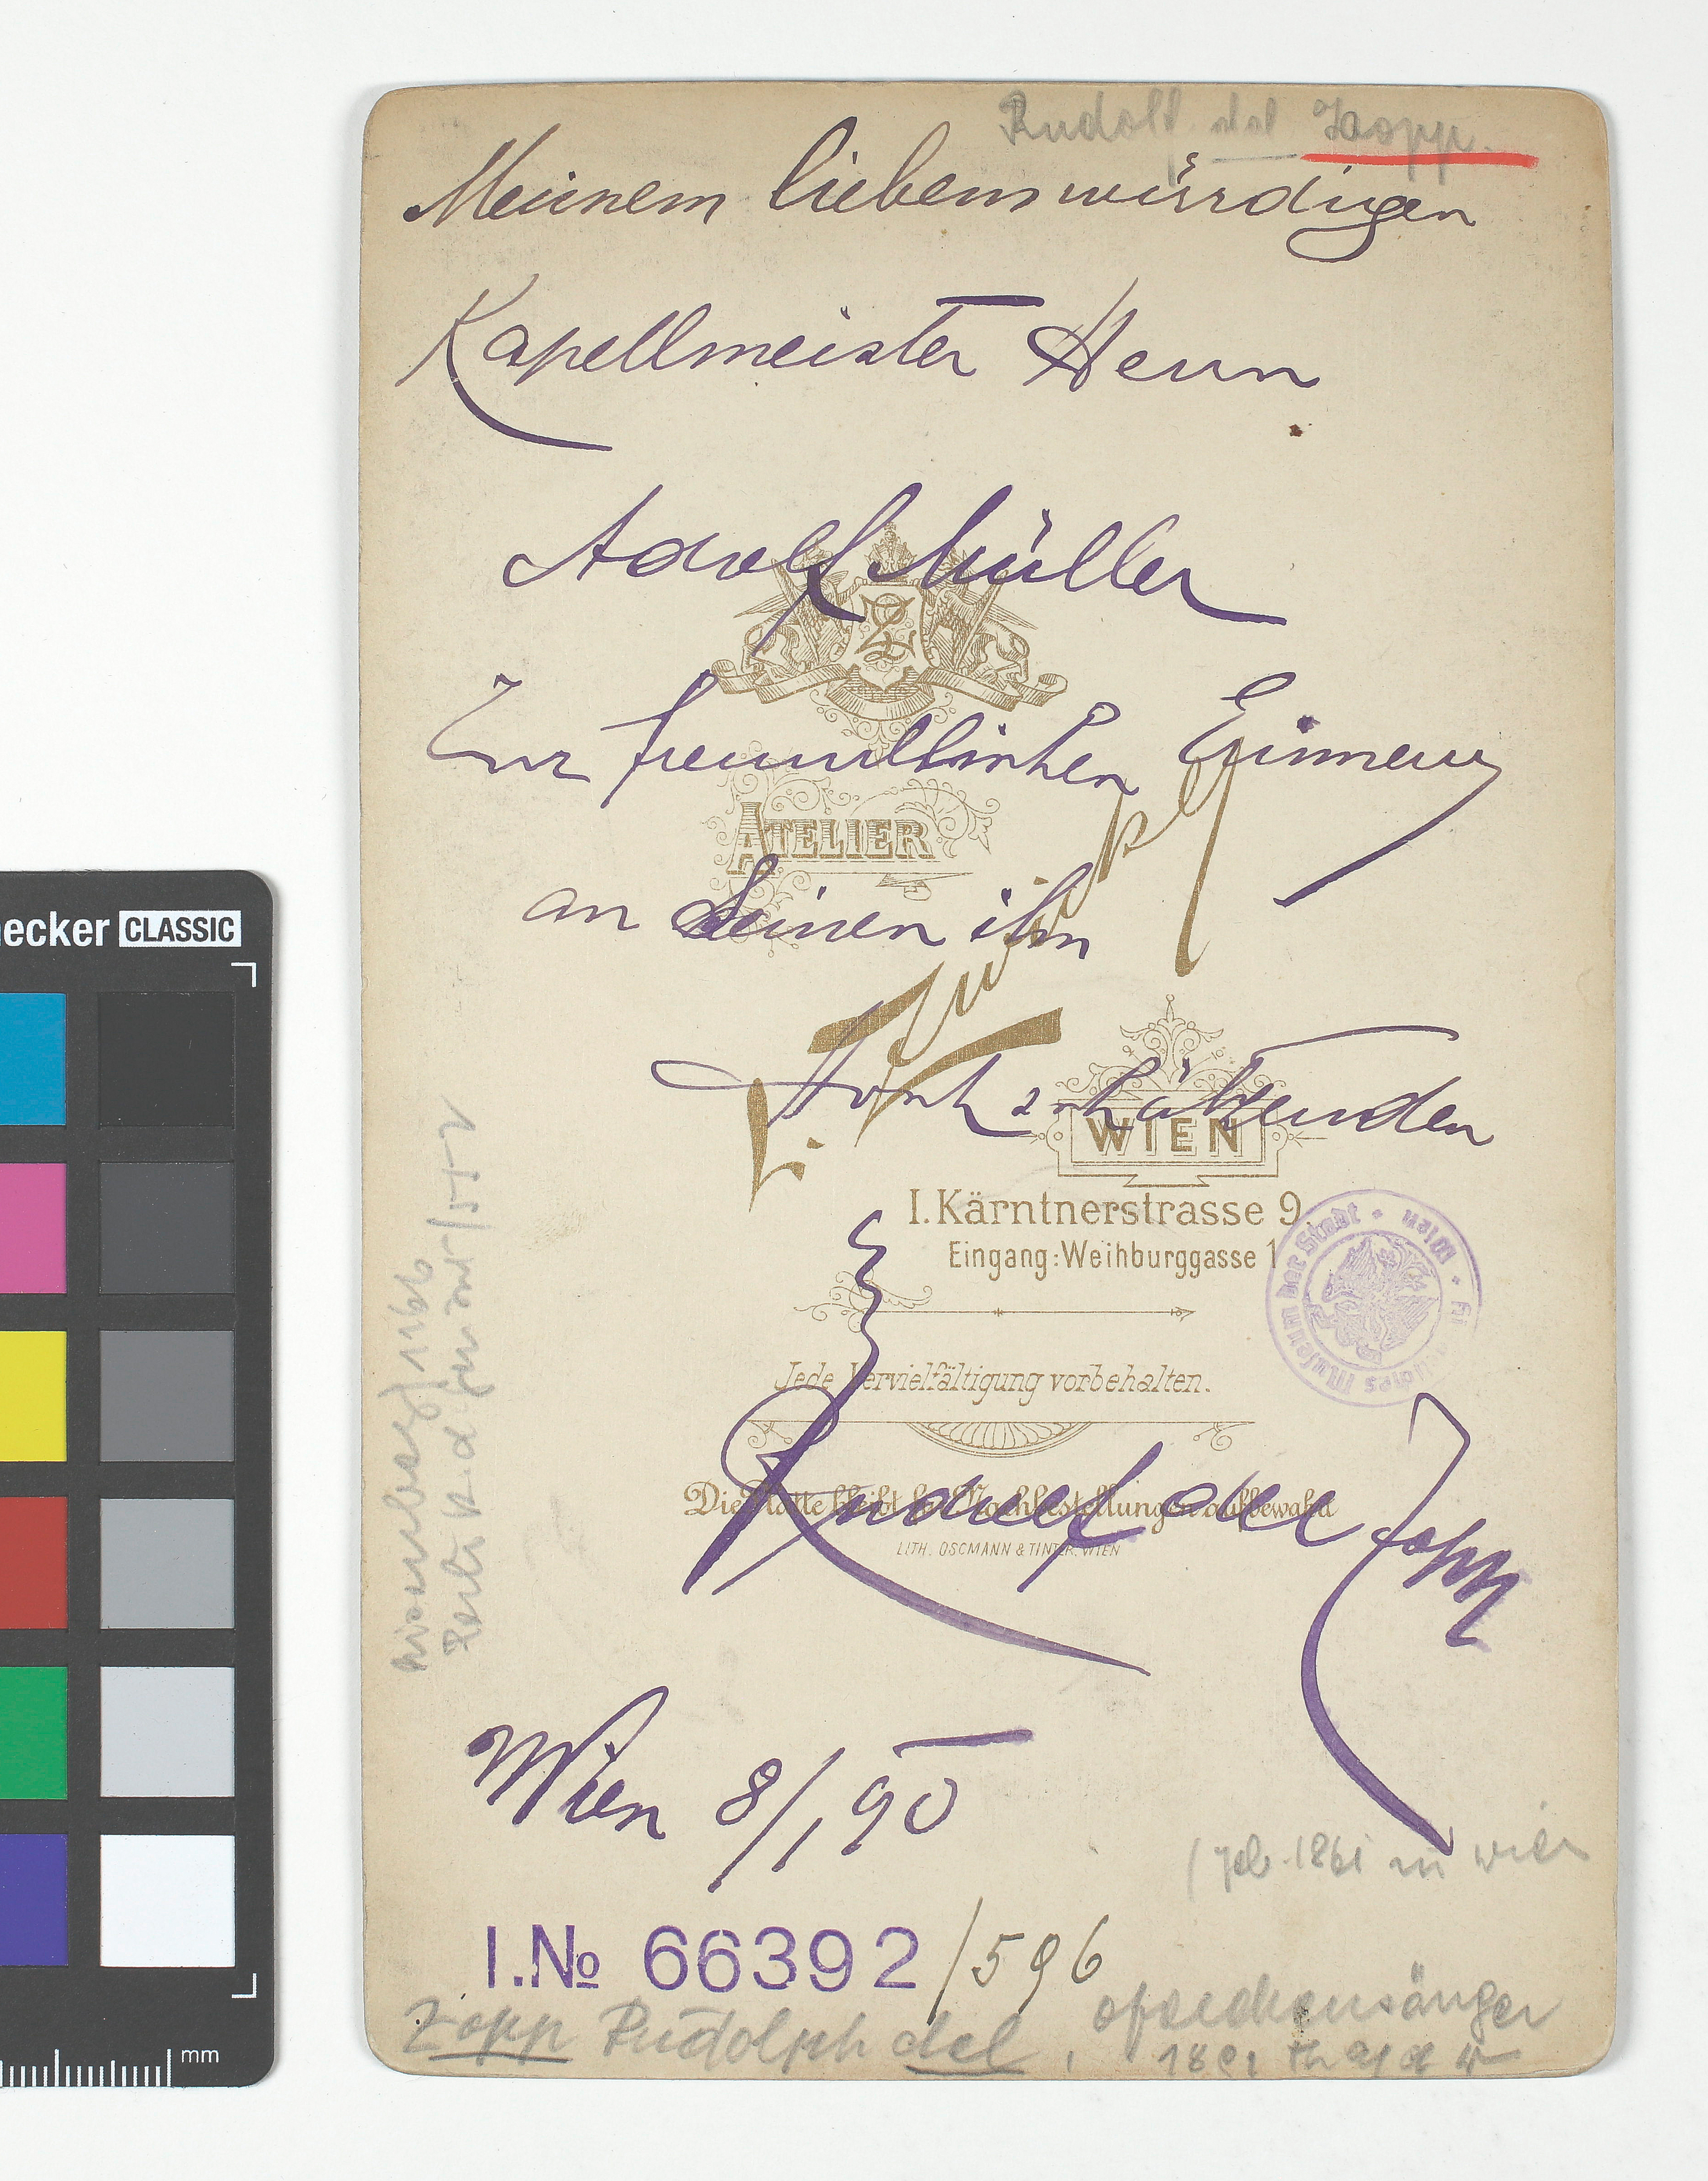 Rudolf del Zopp.
Meinem liebenswürdigen
Kapellmeister Herrn
Adolf Müller
Zur freundlichen Erinnerung
an Seinen ihn
Hochschätzenden
Rudolf del Zopp
Wien 8/1 90
Z
ATELIER
WIEN
I. Kärntnerstrasse 9.
Eingang: Weihburggasse 1
Jede Vervielfältigung vorbehalten.
Die Platte bleibt für Nachbestellungen aufbewahrt
LITH. OSCMANN & TINTER. WIEN
Museum der Stadt Wien
(geb. 1861 in Wien
I.No 66392/596
Zopp Rudolph del,
CLASSIC
mm